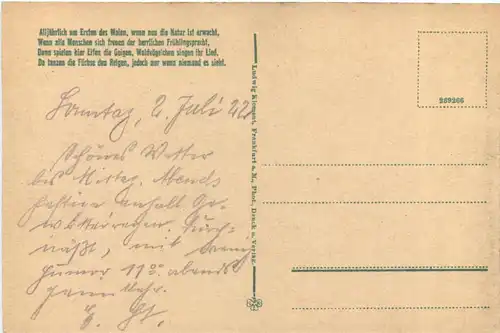 Alljährlich am Ersten des Maien, wenn neu die Natur ist erwacht,
Wenn alle Menschen sich freuen der herrlichen Frühlingspracht,
Dann spielen hier Elfen die Geigen, Waldvöglein singen ihr Lied.
Da tanzen die Füchse den Reigen, jedoch nur wenn niemand es sieht.
Sonntag, 2. Juli 22.
Schönes Wetter
bis Mittag. Abends
heftiger anhalt. Ge-
witterregen. Durch-
näßt, mit wenig
Humor 11°° abends
heim
Ludwig Klement, Frankfurt a. M., Phot., Druck u. Verlag.
269266